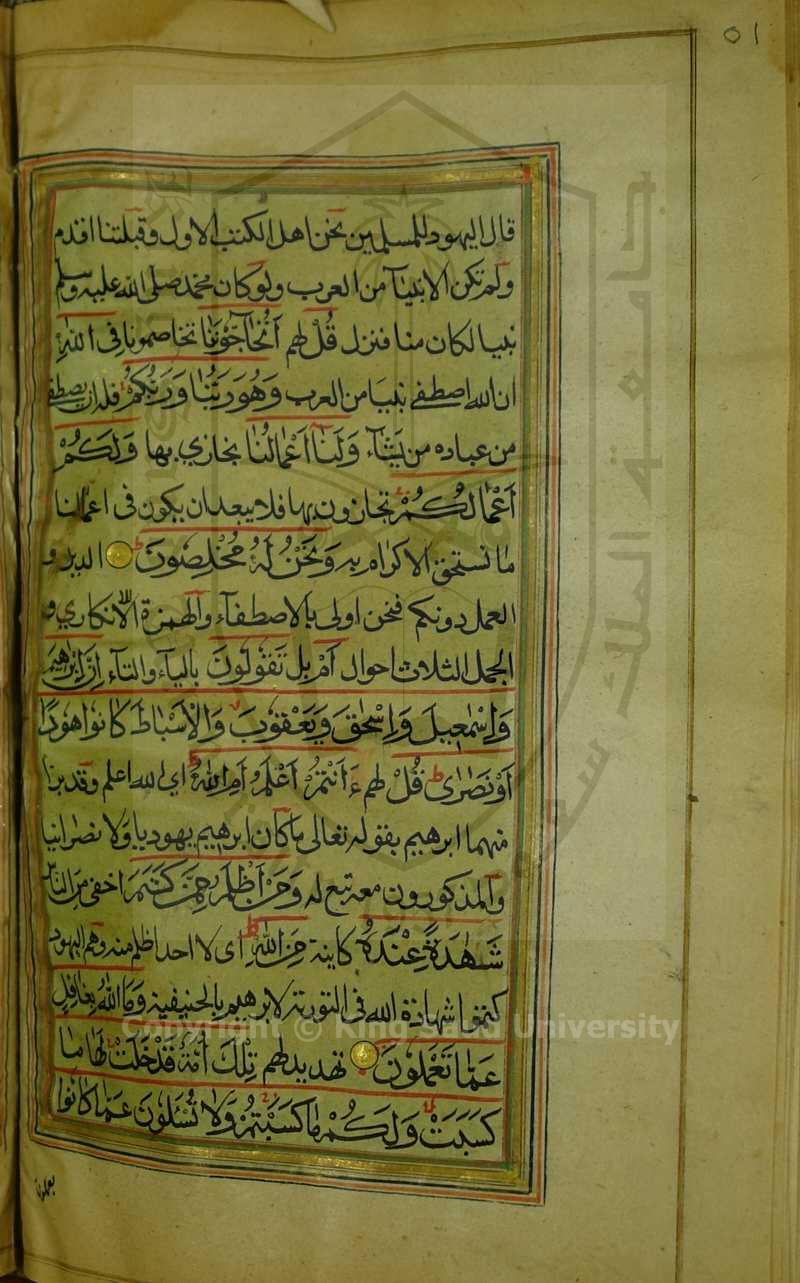 ٥١
قال اليهود للمسلمين نحن اهل الكتب الاول وقبلتنا اقدم
ولم تكن الانبيآ من العرب ولو كان محمد صلى الله عليه وسلم
نبيا لكان منا فنزل قُلْ لهم أَتُحَآجُّونَنَا تخاصموننا فى اللهِ
ان الله اصطفى نبيا من العرب وَهُوَ رَبُّنَا وَرَبُّكُمْ فله ان يصطفى
من عباده من يشآء وَلَنَآ أَعْمَالُنَا نجازى بها وَلَكُمْ
أَعْمَالُكُمْ تجازون بها فلا يبعد ان يكون فى اعمالنا
ما نستحق الاكرام به وَنَحْنُ لَهُ مُخْلِصُونَ الدين و
العمل دونكم فنحن اولى بالاصطفآء والهمزة للانكار و
الجمل الثلاث احوال أَمْ بل تَقُولُونَ باليآء والتآء إِنَّ إِبْرَٰهِيمَ
وَإِسْمَٰعِيلَ وَإِسْحَٰقَ وَيَعْقُوبَ وَالْأَسْبَاطَ كَانُوا هُودًا
أَوْ نَصَٰرَىٰ قُلْ لهم ءَأَنْتُمْ أَعْلَمُ أَمِ اللهُ اى الله اعلم وقد برأ
منهما ابرهيم بقوله تعالى ما كان ابرهيم يهوديا ولا نصرانيا
والمذكورون معه تبع له وَمَنْ أَظْلَمُ مِمَّنْ كَتَمَ اخفى من الناس
شَهَٰدَةً عِنْدَهُ كاينة مِنَ اللهِ اى لا احد اظلم منه وهم اليهود
كتموا شهادة الله فى التورية لابرهيم بالحنيفية وَمَا اللهُ بِغَافِلٍ
عَمَّا تَعْمَلُونَ تهديد لهم تِلْكَ أُمَّةٌ قَدْ خَلَتْ لَهَا مَا
كَسَبَتْ وَلَكُمْ مَا كَسَبْتُمْ وَلَا تُسْـَٔلُونَ عَمَّا كَانُوا
يعملون
Copyright © King Saud University